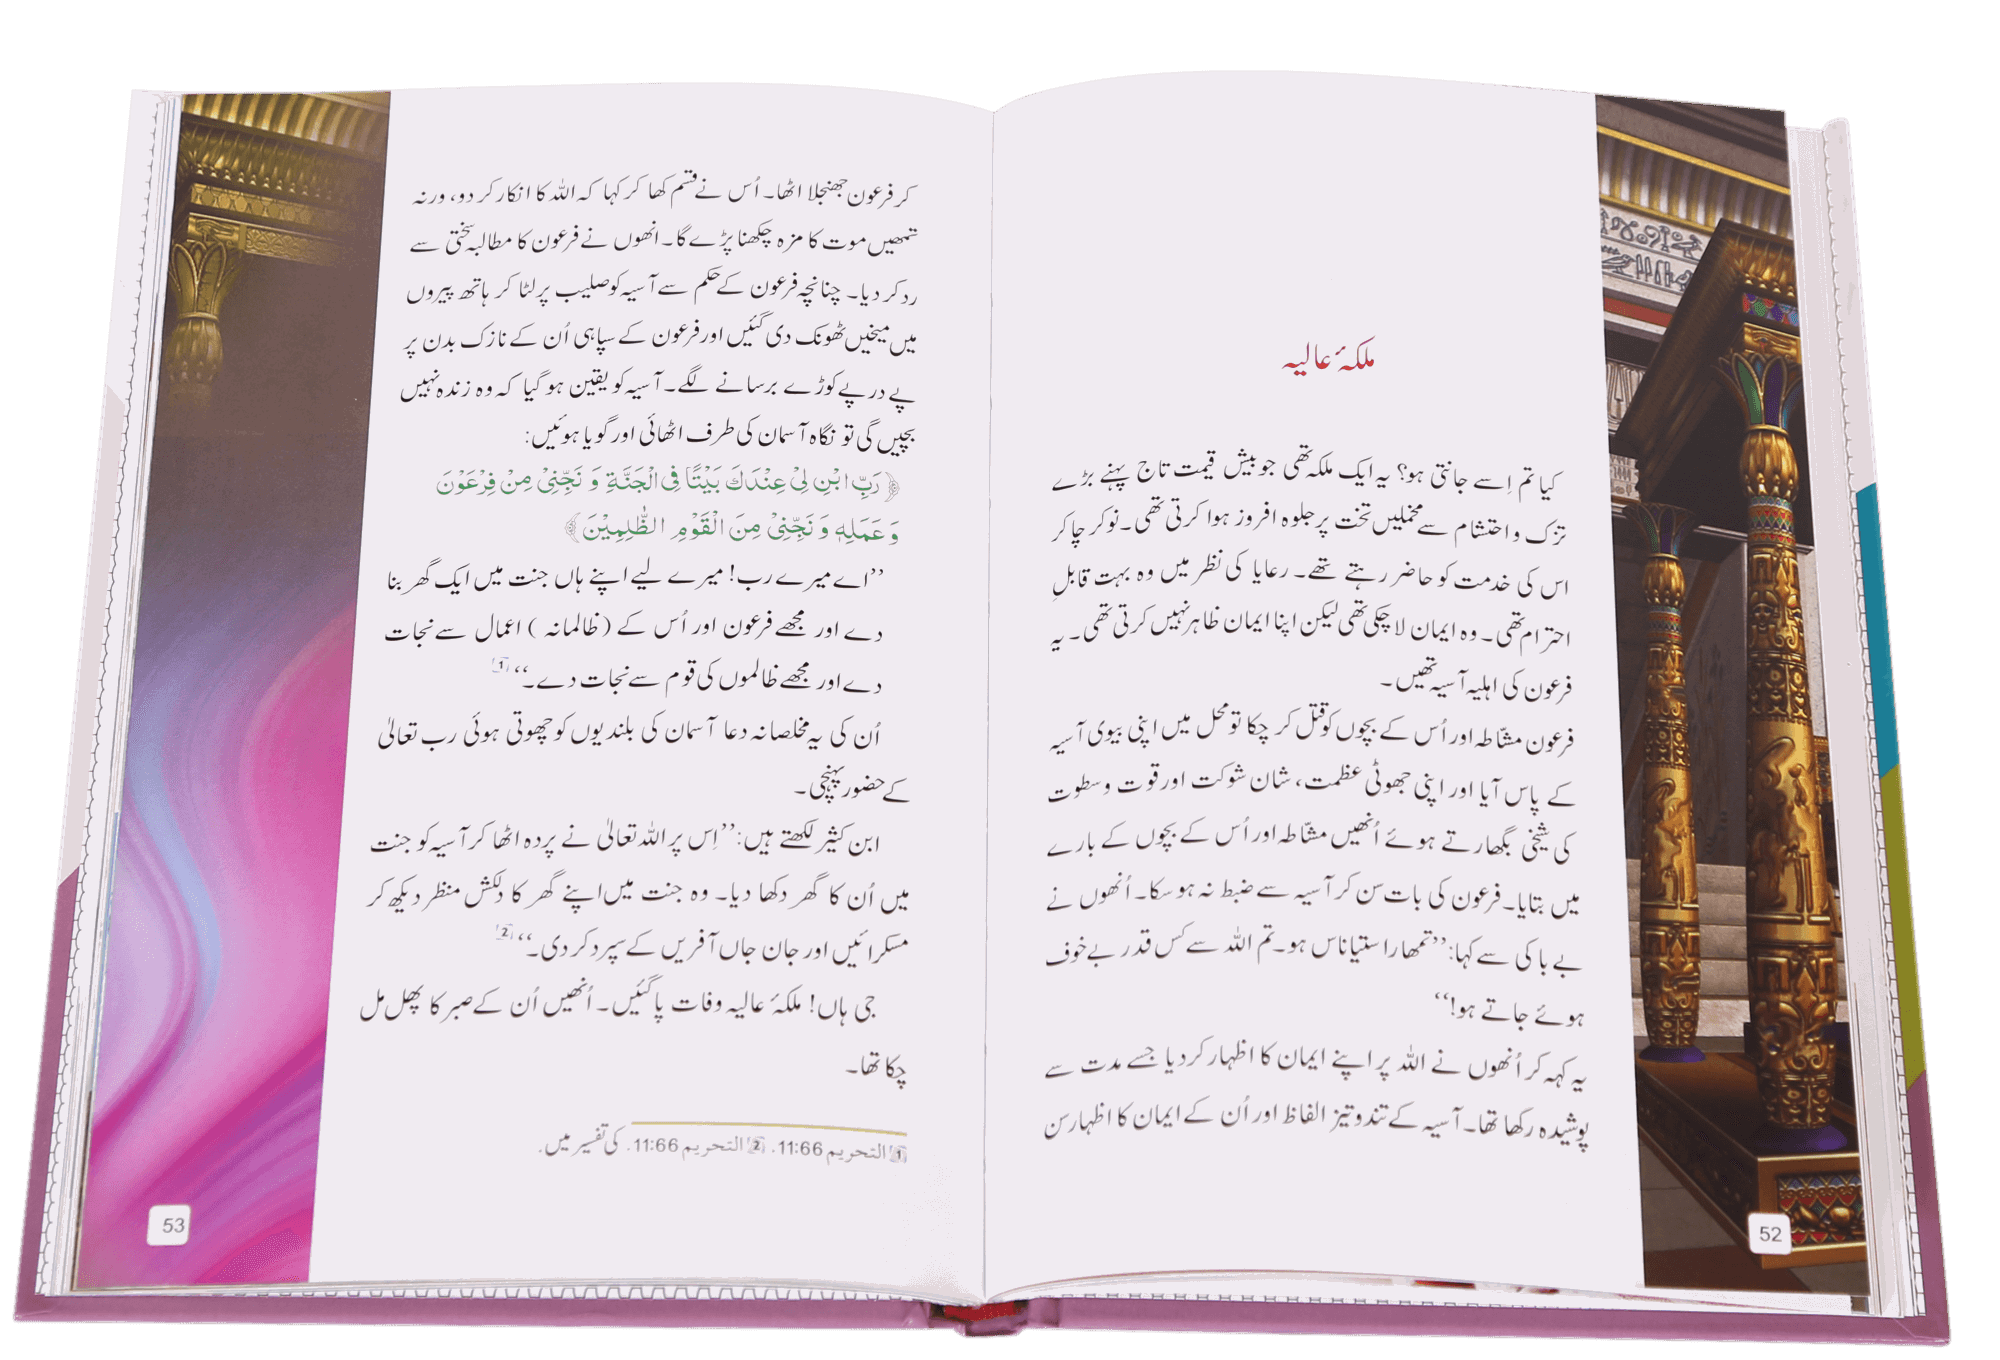 ملکۂ عالیہ
کیا تم اِسے جانتی ہو؟ یہ ایک ملکہ تھی جو بیش قیمت تاج پہنے بڑے
تزک و احتشام سے مخملیں تخت پر جلوہ افروز ہوا کرتی تھی۔ نوکر چاکر
اس کی خدمت کو حاضر رہتے تھے۔ رعایا کی نظر میں وہ بہت قابلِ
احترام تھی۔ وہ ایمان لا چکی تھی لیکن اپنا ایمان ظاہر نہیں کرتی تھی۔ یہ
فرعون کی اہلیہ آسیہ تھیں۔
فرعون مشّاطہ اور اُس کے بچوں کو قتل کر چکا تو محل میں اپنی بیوی آسیہ
کے پاس آیا اور اپنی جھوٹی عظمت، شان شوکت اور قوت و سطوت
کی شیخی بگھارتے ہوئے اُنھیں مشّاطہ اور اُس کے بچوں کے بارے
میں بتایا۔ فرعون کی بات سن کر آسیہ سے ضبط نہ ہو سکا۔ اُنھوں نے
بے باکی سے کہا: ’’تمھارا ستیاناس ہو۔ تم اللہ سے کس قدر بے خوف
ہوئے جاتے ہو!‘‘
یہ کہہ کر اُنھوں نے اللہ پر اپنے ایمان کا اظہار کر دیا جسے مدت سے
پوشیدہ رکھا تھا۔ آسیہ کے تند و تیز الفاظ اور اُن کے ایمان کا اظہار سن
52
کر فرعون جھنجلا اٹھا۔ اُس نے قسم کھا کر کہا کہ اللہ کا انکار کر دو، ورنہ
تمھیں موت کا مزہ چکھنا پڑے گا۔ انھوں نے فرعون کا مطالبہ سختی سے
رد کر دیا۔ چنانچہ فرعون کے حکم سے آسیہ کو صلیب پر لٹا کر ہاتھ پیروں
میں میخیں ٹھونک دی گئیں اور فرعون کے سپاہی اُن کے نازک بدن پر
پے در پے کوڑے برسانے لگے۔ آسیہ کو یقین ہو گیا کہ وہ زندہ نہیں
بچیں گی تو نگاہ آسمان کی طرف اٹھائی اور گویا ہوئیں:
﴿رَبِّ ابْنِ لِیْ عِنْدَكَ بَیْتًا فِی الْجَنَّةِ وَ نَجِّنِیْ مِنْ فِرْعَوْنَ
وَ عَمَلِهٖ وَ نَجِّنِیْ مِنَ الْقَوْمِ الظّٰلِمِیْنَ﴾
’’اے میرے رب! میرے لیے اپنے ہاں جنت میں ایک گھر بنا
دے اور مجھے فرعون اور اُس کے (ظالمانہ) اعمال سے نجات
دے اور مجھے ظالموں کی قوم سے نجات دے۔‘‘ 1
اُن کی یہ مخلصانہ دعا آسمان کی بلندیوں کو چھوتی ہوئی رب تعالیٰ
کے حضور پہنچی۔
ابن کثیر لکھتے ہیں: ’’اِس پر اللہ تعالیٰ نے پردہ اٹھا کر آسیہ کو جنت
میں اُن کا گھر دکھا دیا۔ وہ جنت میں اپنے گھر کا دلکش منظر دیکھ کر
مسکرائیں اور جان جاں آفریں کے سپرد کر دی۔‘‘ 2
جی ہاں! ملکۂ عالیہ وفات پا گئیں۔ اُنھیں اُن کے صبر کا پھل مل
چکا تھا۔
1 التحریم 11:66. 2 التحریم 11:66. کی تفسیر میں.
53